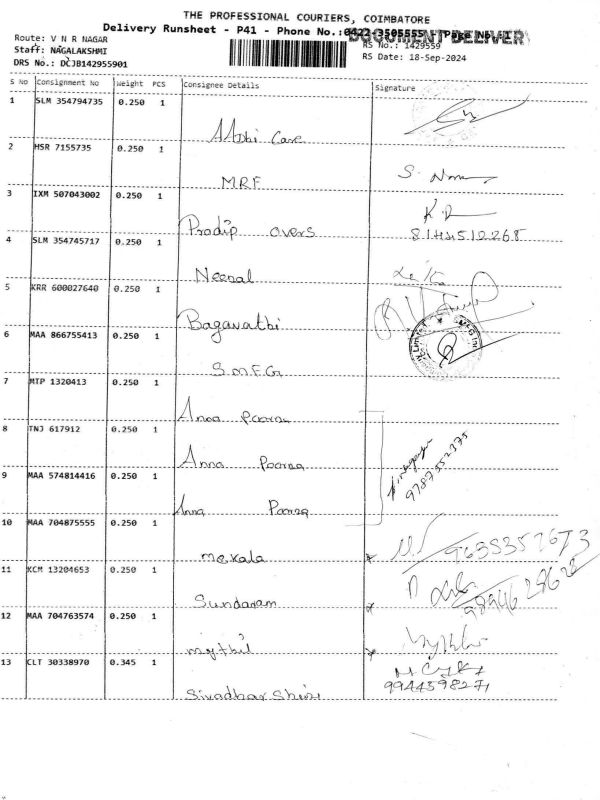 THE PROFESSIONAL COURIERS, COIMBATORE
Delivery Runsheet - P41 - Phone No.:0422-3505555
DOCUMENT DELIVER
Route: V N R NAGAR
RS No.: 1429559
Staff: NAGALAKSHMI
RS Date: 18-Sep-2024
DRS No.: DCJB142955901
S No Consignment No Weight PCS Consignee Details Signature
1 SLM 354794735 0.250 1
Abhi Care
2 HSR 7155735 0.250 1
MRF
3 IXM 507043002 0.250 1
Pradip overs 8144512268
4 SLM 354745717 0.250 1
Neenal
5 KRR 600027640 0.250 1
Bagavathi
6 MAA 866755413 0.250 1
SMFG
7 MTP 1320413 0.250 1
Anna Poorna
8 TNJ 617912 0.250 1
Anna Poorna 9787552375
9 MAA 574814416 0.250 1
Anna Poorna
10 MAA 704875555 0.250 1
mekala 9635357673
11 KCM 13204653 0.250 1
Sundaram 9894628628
12 MAA 704763574 0.250 1
mythil
13 CLT 30338970 0.345 1
Sivadharshini 9944598271